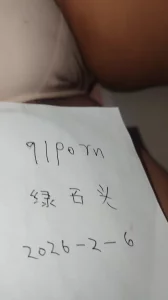 91porn
绿石头
2026-2-6